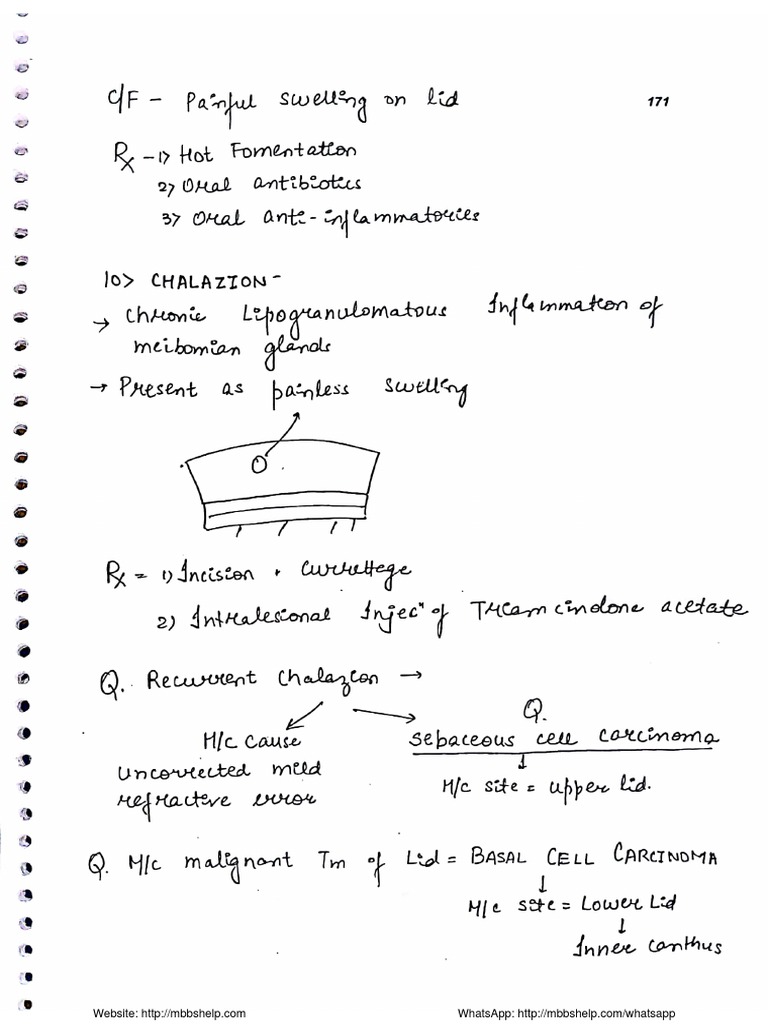 C/F - Painful swelling on lid
171
Rx - 1> Hot Fomentation
2> Oral antibiotics
3> Oral anti-inflammatories
10> CHALAZION -
→ Chronic Lipogranulomatous Inflammation of
meibomian glands
→ Present as painless swelling
Rx = 1) Incision + Currettege
2) Intralesional Injecⁿ of Triamcindone acetate
Q. Recurrent Chalazion →
M/c cause
uncorrected mild
refractive error
Q.
sebaceous cell carcinoma
↓
M/c site = upper lid.
Q. M/c malignant Tm of Lid = BASAL CELL CARCINOMA
↓
M/c site = Lower Lid
↓
Inner canthus
Website: http://mbbshelp.com
WhatsApp: http://mbbshelp.com/whatsapp